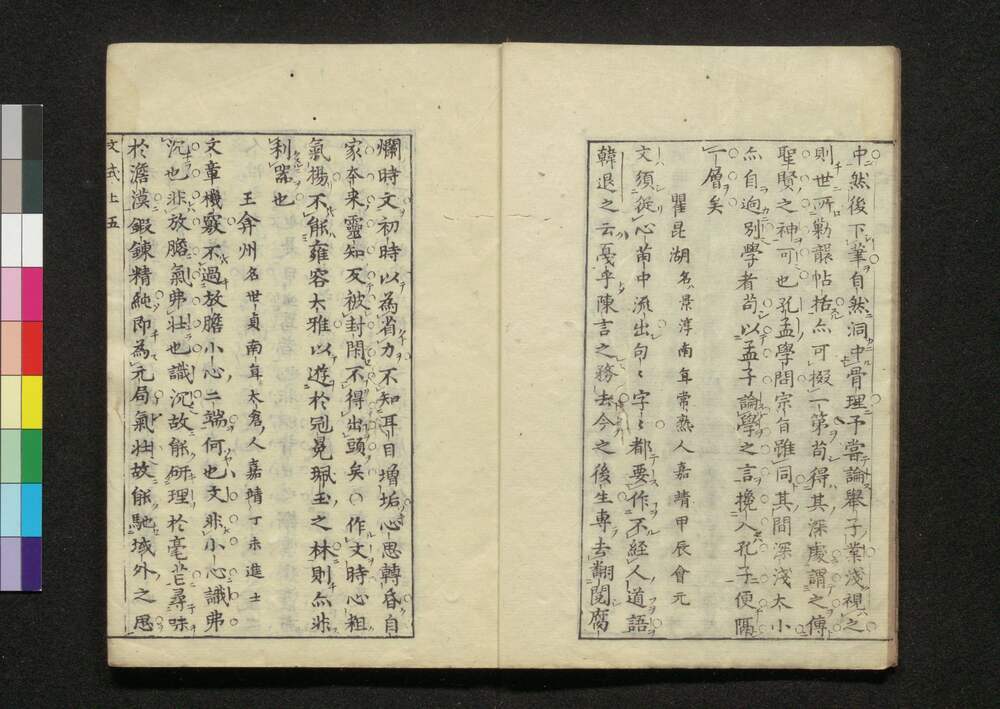 中然後下筆自然洞中骨理予嘗論舉子業淺視之
則世所勦襲帖括亦可掇一第苟得其深處謂之傳
聖賢之神可也孔孟學問宗旨雖同其間深淺大小
亦自逈別學者苟以孟子論學之言攙入孔子便隔
一層矣
瞿昆湖名景淳南直常熟人嘉靖甲辰會元
文須從心苗中流出句〻字〻都要作不經人道語
韓退之云戛乎陳言之務去今之後生專去翻閱腐
爛時文初時以為省力不知耳目增垢心思轉昏自
家本來靈知反被封閉不得出頭矣〇作文時心粗
氣揚不能雍容大雅以遊於冠冕珮玉之林則亦非
利器也
王弇州名世貞南直太倉人嘉靖丁未進士
文章機竅不過放膽小心二端何也文非小心識弗
沉也非放膽氣弗壯也識沉故能研理於毫芒尋味
於澹漠鍛鍊精純即為元局氣壯故能馳域外之思
文式上五